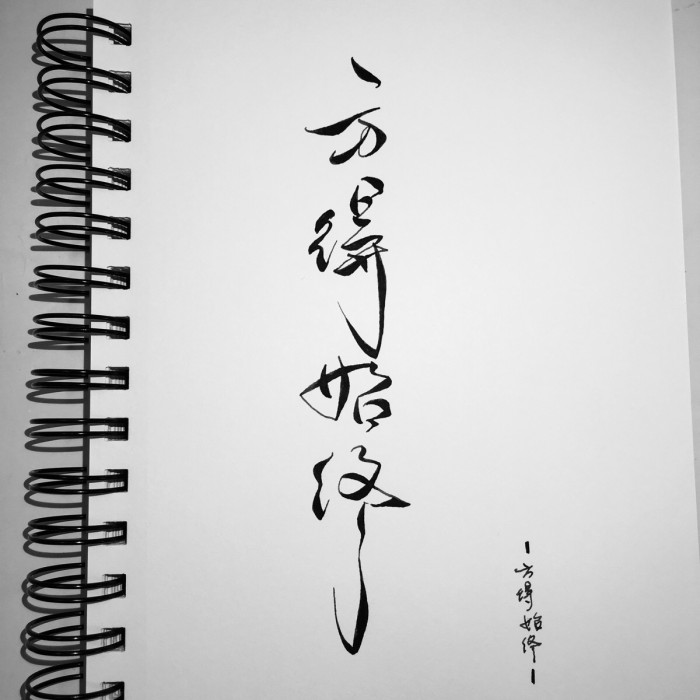 方得始终
方得始终